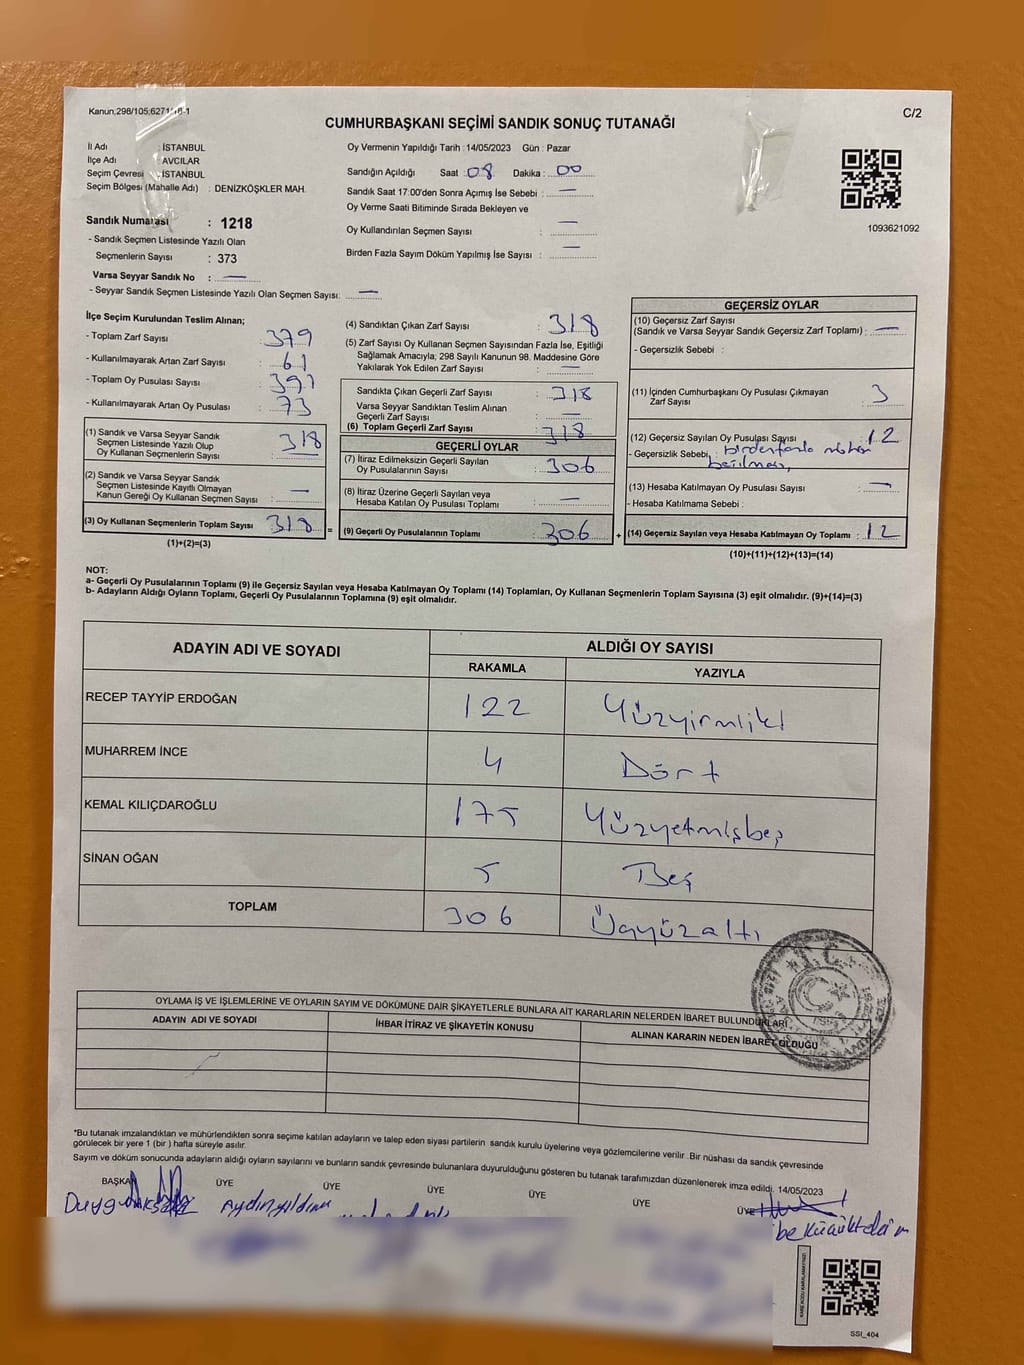 Kanun,298/105;6271/16-1
C/2
CUMHURBAŞKANI SEÇİMİ SANDIK SONUÇ TUTANAĞI
İl Adı : İSTANBUL
İlçe Adı : AVCILAR
Seçim Çevresi : İSTANBUL
Seçim Bölgesi (Mahalle Adı) : DENİZKÖŞKLER MAH.
Sandık Numarası : 1218
- Sandık Seçmen Listesinde Yazılı Olan
Seçmenlerin Sayısı : 373
Varsa Seyyar Sandık No : —
- Seyyar Sandık Seçmen Listesinde Yazılı Olan Seçmen Sayısı: —
Oy Vermenin Yapıldığı Tarih : 14/05/2023 Gün : Pazar
Sandığın Açıldığı Saat : 08 Dakika : 00
Sandık Saat 17:00'den Sonra Açımış İse Sebebi : —
Oy Verme Saati Bitiminde Sırada Bekleyen ve
Oy Kullandırılan Seçmen Sayısı : —
Birden Fazla Sayım Döküm Yapılmış İse Sayısı : —
1093621092
İlçe Seçim Kurulundan Teslim Alınan;
- Toplam Zarf Sayısı : 379
- Kullanılmayarak Artan Zarf Sayısı : 61
- Toplam Oy Pusulası Sayısı : 391
- Kullanılmayarak Artan Oy Pusulası : 73
(1) Sandık ve Varsa Seyyar Sandık
Seçmen Listesinde Yazılı Olup
Oy Kullanan Seçmenlerin Sayısı : 318
(2) Sandık ve Varsa Seyyar Sandık
Seçmen Listesinde Kayıtlı Olmayan
Kanun Gereği Oy Kullanan Seçmen Sayısı : —
(3) Oy Kullanan Seçmenlerin Toplam Sayısı : 318 =
(1)+(2)=(3)
(4) Sandıktan Çıkan Zarf Sayısı : 318
(5) Zarf Sayısı Oy Kullanan Seçmen Sayısından Fazla İse, Eşitliği
Sağlamak Amacıyla; 298 Sayılı Kanunun 98. Maddesine Göre
Yakılarak Yok Edilen Zarf Sayısı : —
Sandıkta Çıkan Geçerli Zarf Sayısı : 318
Varsa Seyyar Sandıktan Teslim Alınan
Geçerli Zarf Sayısı : —
(6) Toplam Geçerli Zarf Sayısı : 318
GEÇERLİ OYLAR
(7) İtiraz Edilmeksizin Geçerli Sayılan
Oy Pusulalarının Sayısı : 306
(8) İtiraz Üzerine Geçerli Sayılan veya
Hesaba Katılan Oy Pusulaları Toplamı : —
(9) Geçerli Oy Pusulalarının Toplamı : 306 +
GEÇERSİZ OYLAR
(10) Geçersiz Zarf Sayısı
(Sandık ve Varsa Seyyar Sandık Geçersiz Zarf Toplamı) : —
- Geçersizlik Sebebi :
(11) İçinden Cumhurbaşkanı Oy Pusulası Çıkmayan
Zarf Sayısı : 3
(12) Geçersiz Sayılan Oy Pusulası Sayısı : 12
- Geçersizlik Sebebi : birden fazla mühür
basılması,
(13) Hesaba Katılmayan Oy Pusulası Sayısı : —
- Hesaba Katılmama Sebebi :
(14) Geçersiz Sayılan veya Hesaba Katılmayan Oy Toplamı : 12
(10)+(11)+(12)+(13)=(14)
NOT:
a- Geçerli Oy Pusulalarının Toplamı (9) ile Geçersiz Sayılan veya Hesaba Katılmayan Oy Toplamı (14) Toplamları, Oy Kullanan Seçmenlerin Toplam Sayısına (3) eşit olmalıdır. (9)+(14)=(3)
b- Adayların Aldığı Oyların Toplamı, Geçerli Oy Pusulalarının Toplamına (9) eşit olmalıdır.
ADAYIN ADI VE SOYADI
ALDIĞI OY SAYISI
RAKAMLA YAZIYLA
RECEP TAYYİP ERDOĞAN 122 Yüzyirmiiki
MUHARREM İNCE 4 Dört
KEMAL KILIÇDAROĞLU 175 Yüzyetmişbeş
SİNAN OĞAN 5 Beş
TOPLAM 306 Üçyüzaltı
T.C.
OYLAMA İŞ VE İŞLEMLERİNE VE OYLARIN SAYIM VE DÖKÜMÜNE DAİR ŞİKAYETLERLE BUNLARA AİT KARARLARIN NELERDEN İBARET BULUNDUKLARI
ADAYIN ADI VE SOYADI İHBAR İTİRAZ VE ŞİKAYETİN KONUSU ALINAN KARARIN NEDEN İBARET OLDUĞU
*Bu tutanak imzalandıktan ve mühürlendikten sonra seçime katılan adayların ve talep eden siyasi partilerin sandık kurulu üyelerine veya gözlemcilerine verilir. Bir nüshası da sandık çevresinde
görülecek bir yere 1 (bir) hafta süreyle asılır.
Sayım ve döküm sonucunda adayların aldığı oyların sayılarını ve bunların sandık çevresinde bulunanlara duyurulduğunu gösteren bu tutanak tarafımızdan düzenlenerek imza edildi. 14/05/2023
BAŞKAN ÜYE ÜYE ÜYE ÜYE ÜYE ÜYE
Aydın yıldırım
SSİ_404